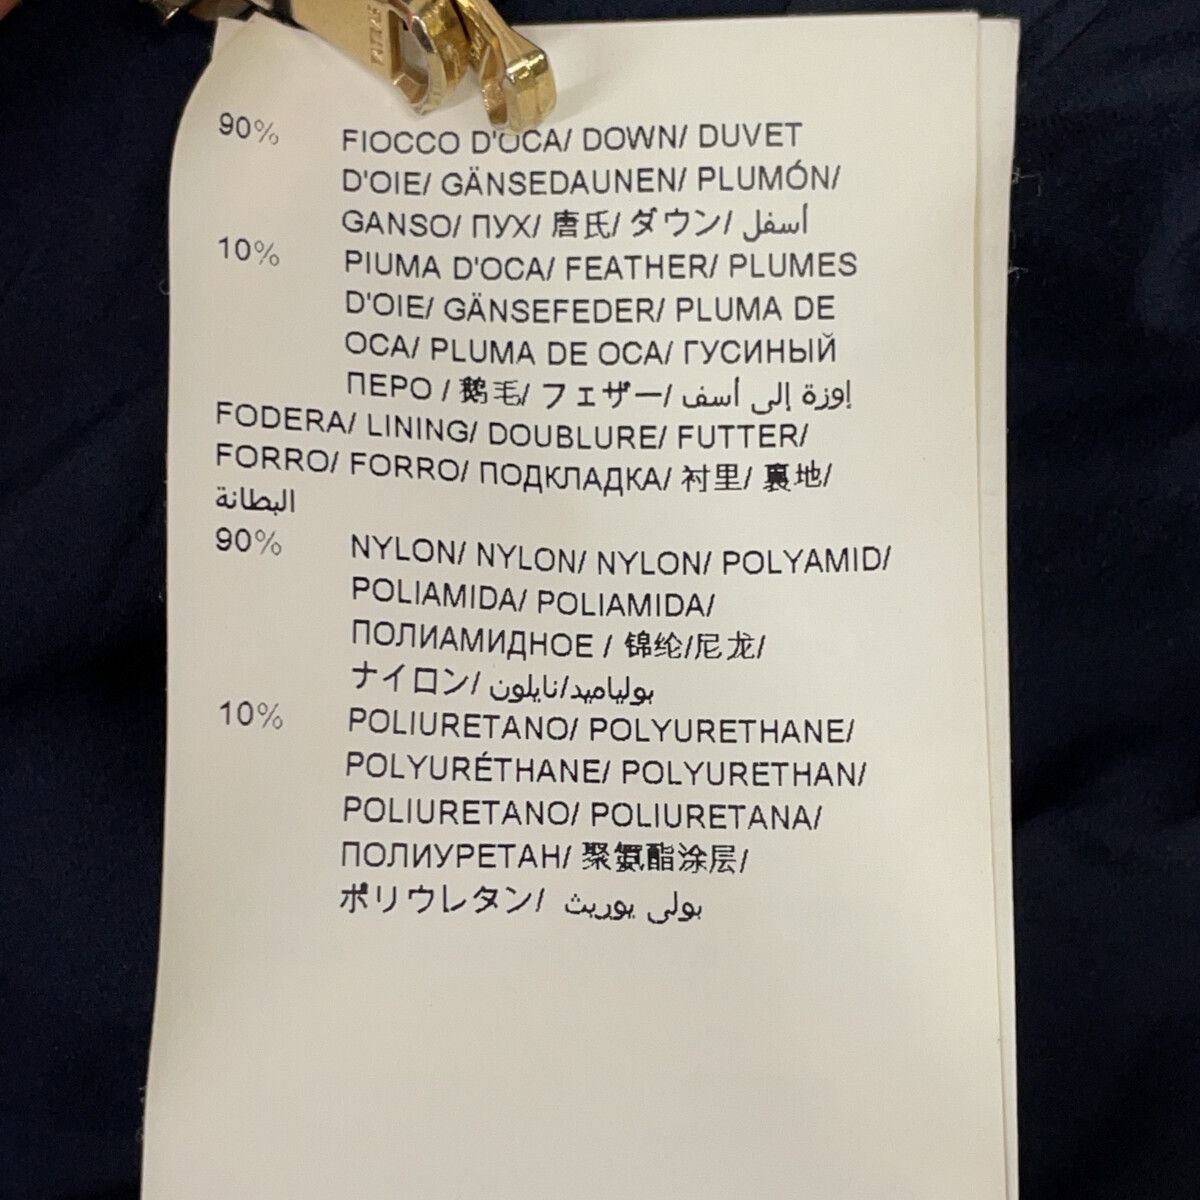 90% FIOCCO D'OCA/ DOWN/ DUVET
D'OIE/ GÄNSEDAUNEN/ PLUMÓN/
GANSO/ ПУХ/ 唐氏/ ダウン/ أسفل
10% PIUMA D'OCA/ FEATHER/ PLUMES
D'OIE/ GÄNSEFEDER/ PLUMA DE
OCA/ PLUMA DE OCA/ ГУСИНЫЙ
ПЕРО / 鹅毛/ フェザー/ إوزة إلى أسف
FODERA/ LINING/ DOUBLURE/ FUTTER/
FORRO/ FORRO/ ПОДКЛАДКА/ 衬里/ 裏地/
البطانة
90% NYLON/ NYLON/ NYLON/ POLYAMID/
POLIAMIDA/ POLIAMIDA/
ПОЛИАМИДНОЕ / 锦纶/尼龙/
ナイロン/ بولياميد/نايلون
10% POLIURETANO/ POLYURETHANE/
POLYURÉTHANE/ POLYURETHAN/
POLIURETANO/ POLIURETANA/
ПОЛИУРЕТАН/ 聚氨酯涂层/
ポリウレタン/ بولي يوريث